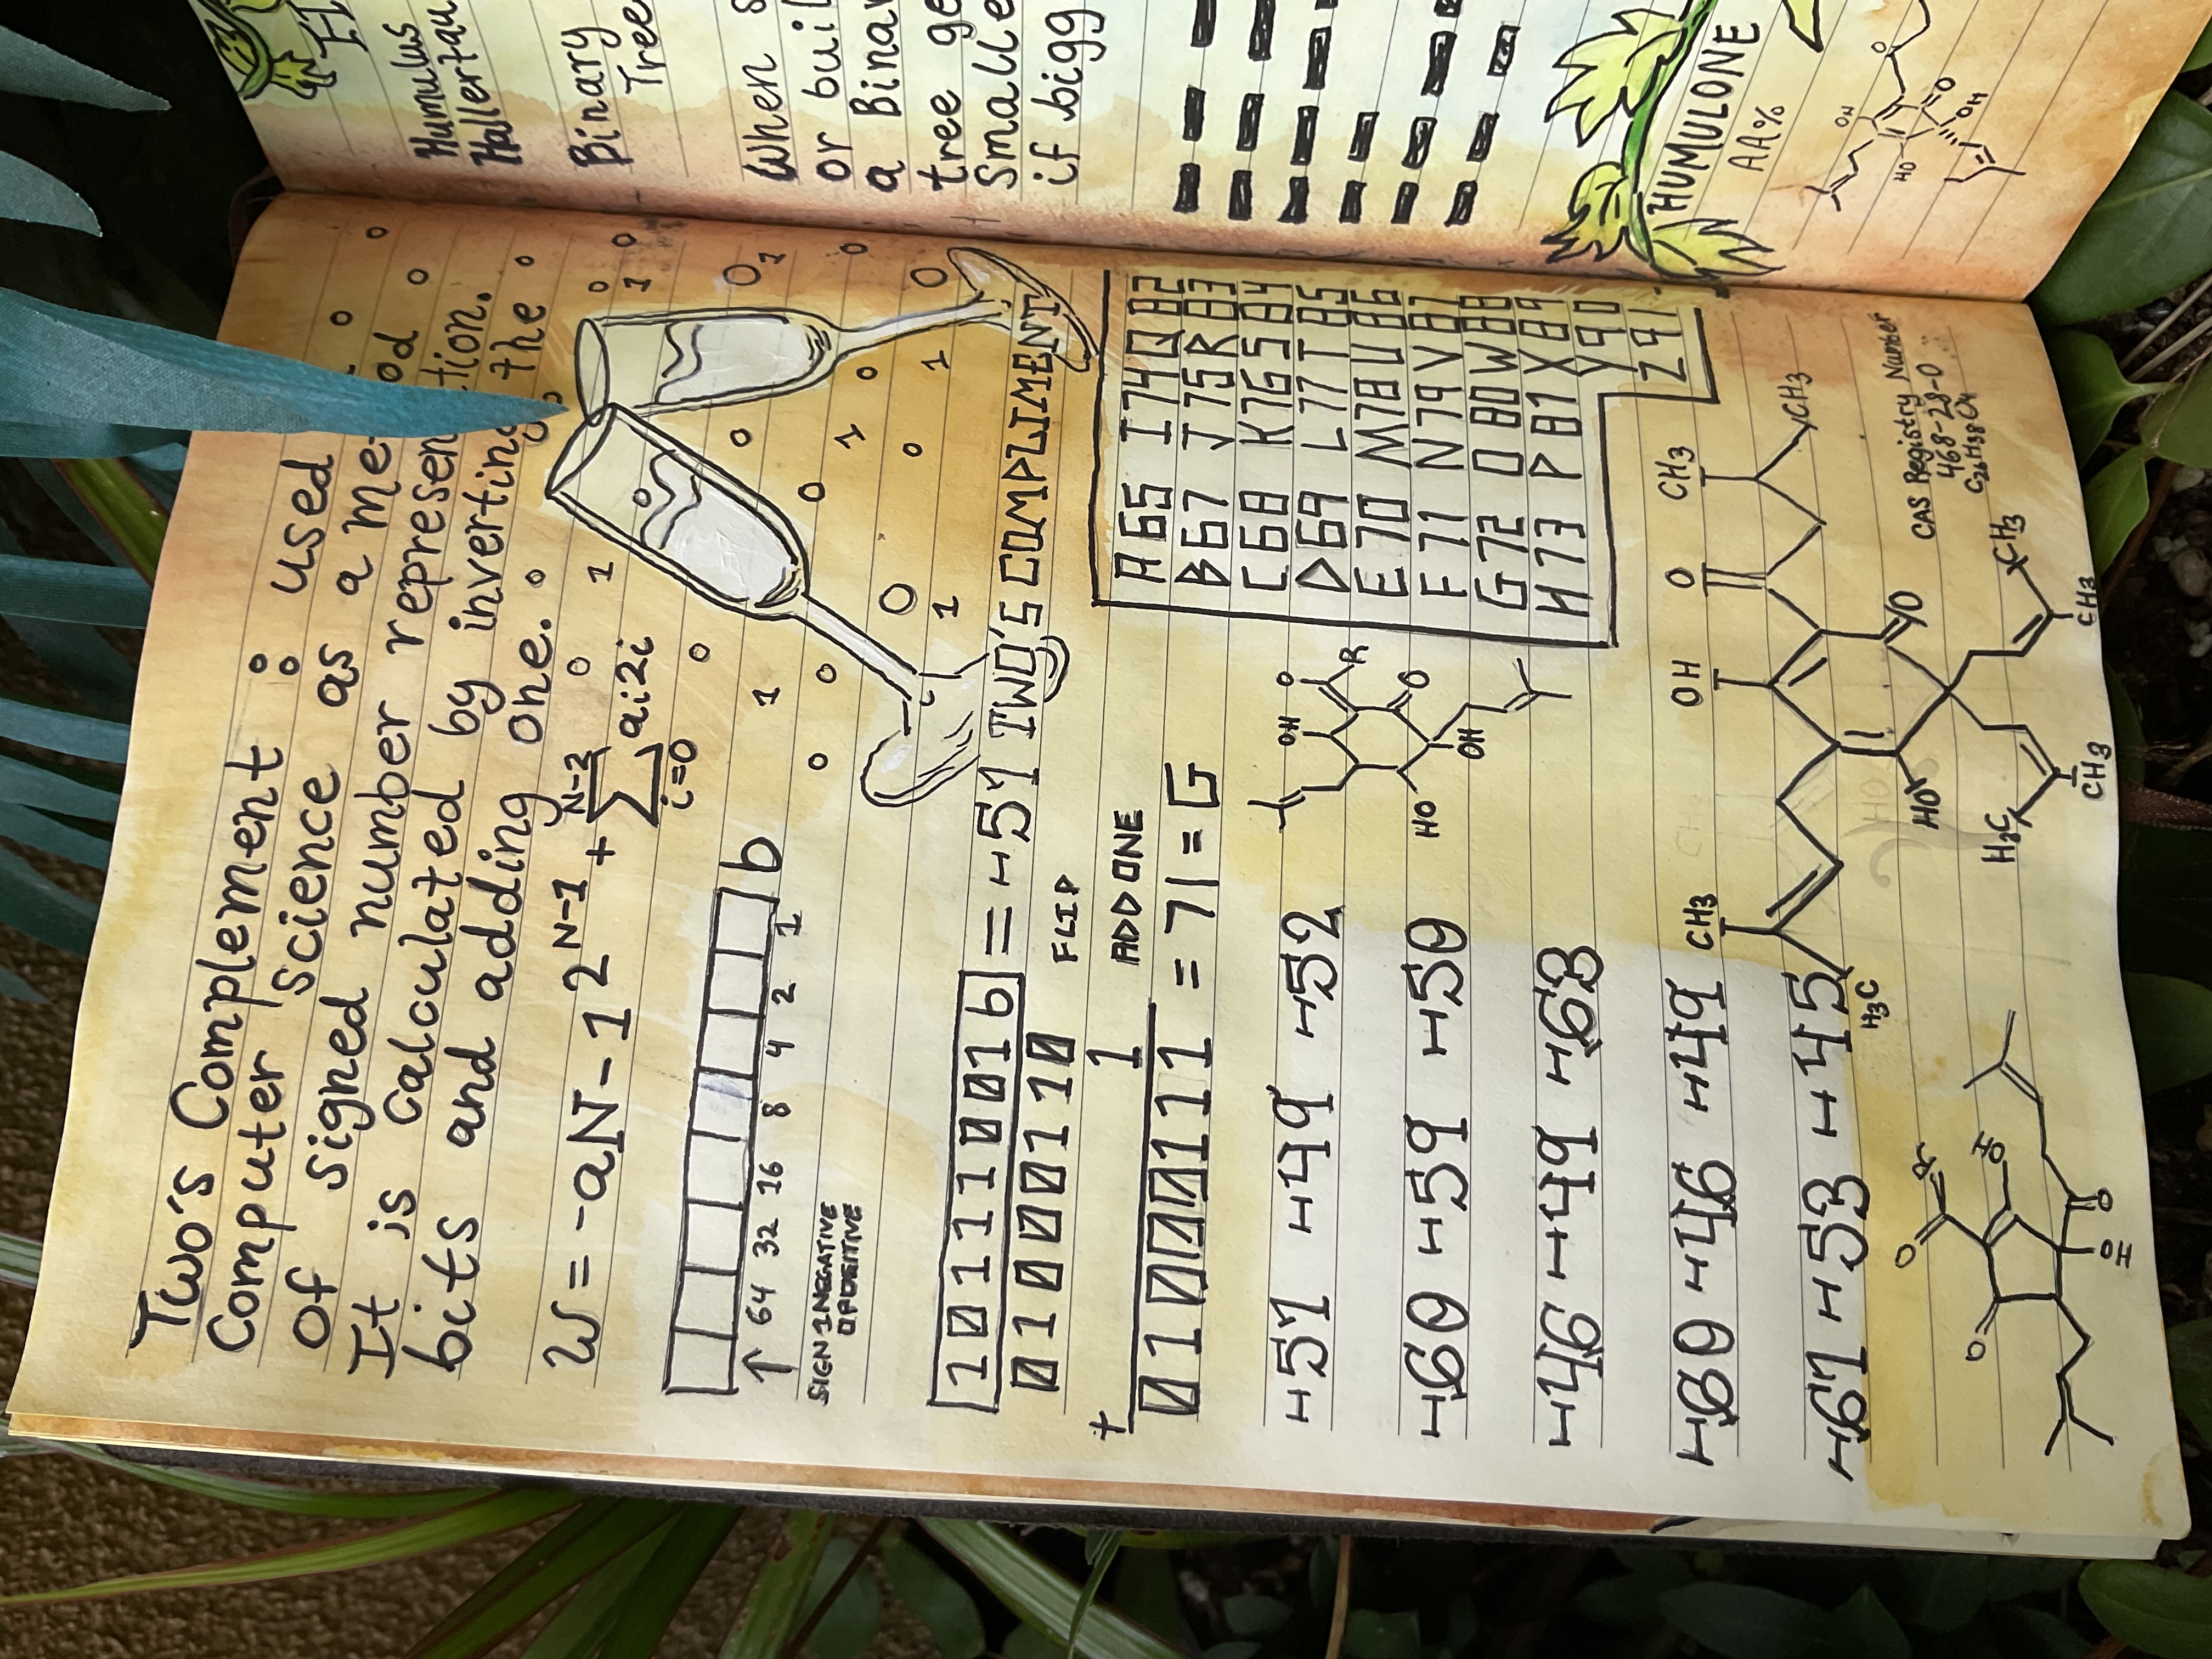 Two's Complement : used
Computer science as a me od
of signed number represen tion.
It is calculated by inverting the
bits and adding one.
W = -aN-1 2^N-1 + N-2 ∑ i=0 ai2i
b
↑ 64 32 16 8 4 2 1
SIGN 1 NEGATIVE
0 POSITIVE
10111001b = -57 TWO'S COMPLIMENT
01000110 FLIP
+ 1 ADD ONE
01000111 = 71 = G
-57 -49 -52
-60 -59 -50
-46 -49 -63
-60 -46 -49
-61 -53 -45
A 65 I 74 Q 82
B 67 J 75 R 83
C 68 K 76 S 84
D 69 L 77 T 85
E 70 M 78 U 86
F 71 N 79 V 87
G 72 O 80 W 88
H 73 P 81 X 89
Y 90
Z 91
OH O
R
HO O
OH
CH3 OH O CH3
CH3
H3C
HO O
H3C CH3
CH3 CH3
CAS Registry Number
468-28-0
C26H38O4
O R
O OH
HO O
Humulus
Hallertau
Binary
Tree
When
or buil
a Binar
tree ge
Smalle
if bigg
HUMULONE
AA%
OH O
HO O
OH